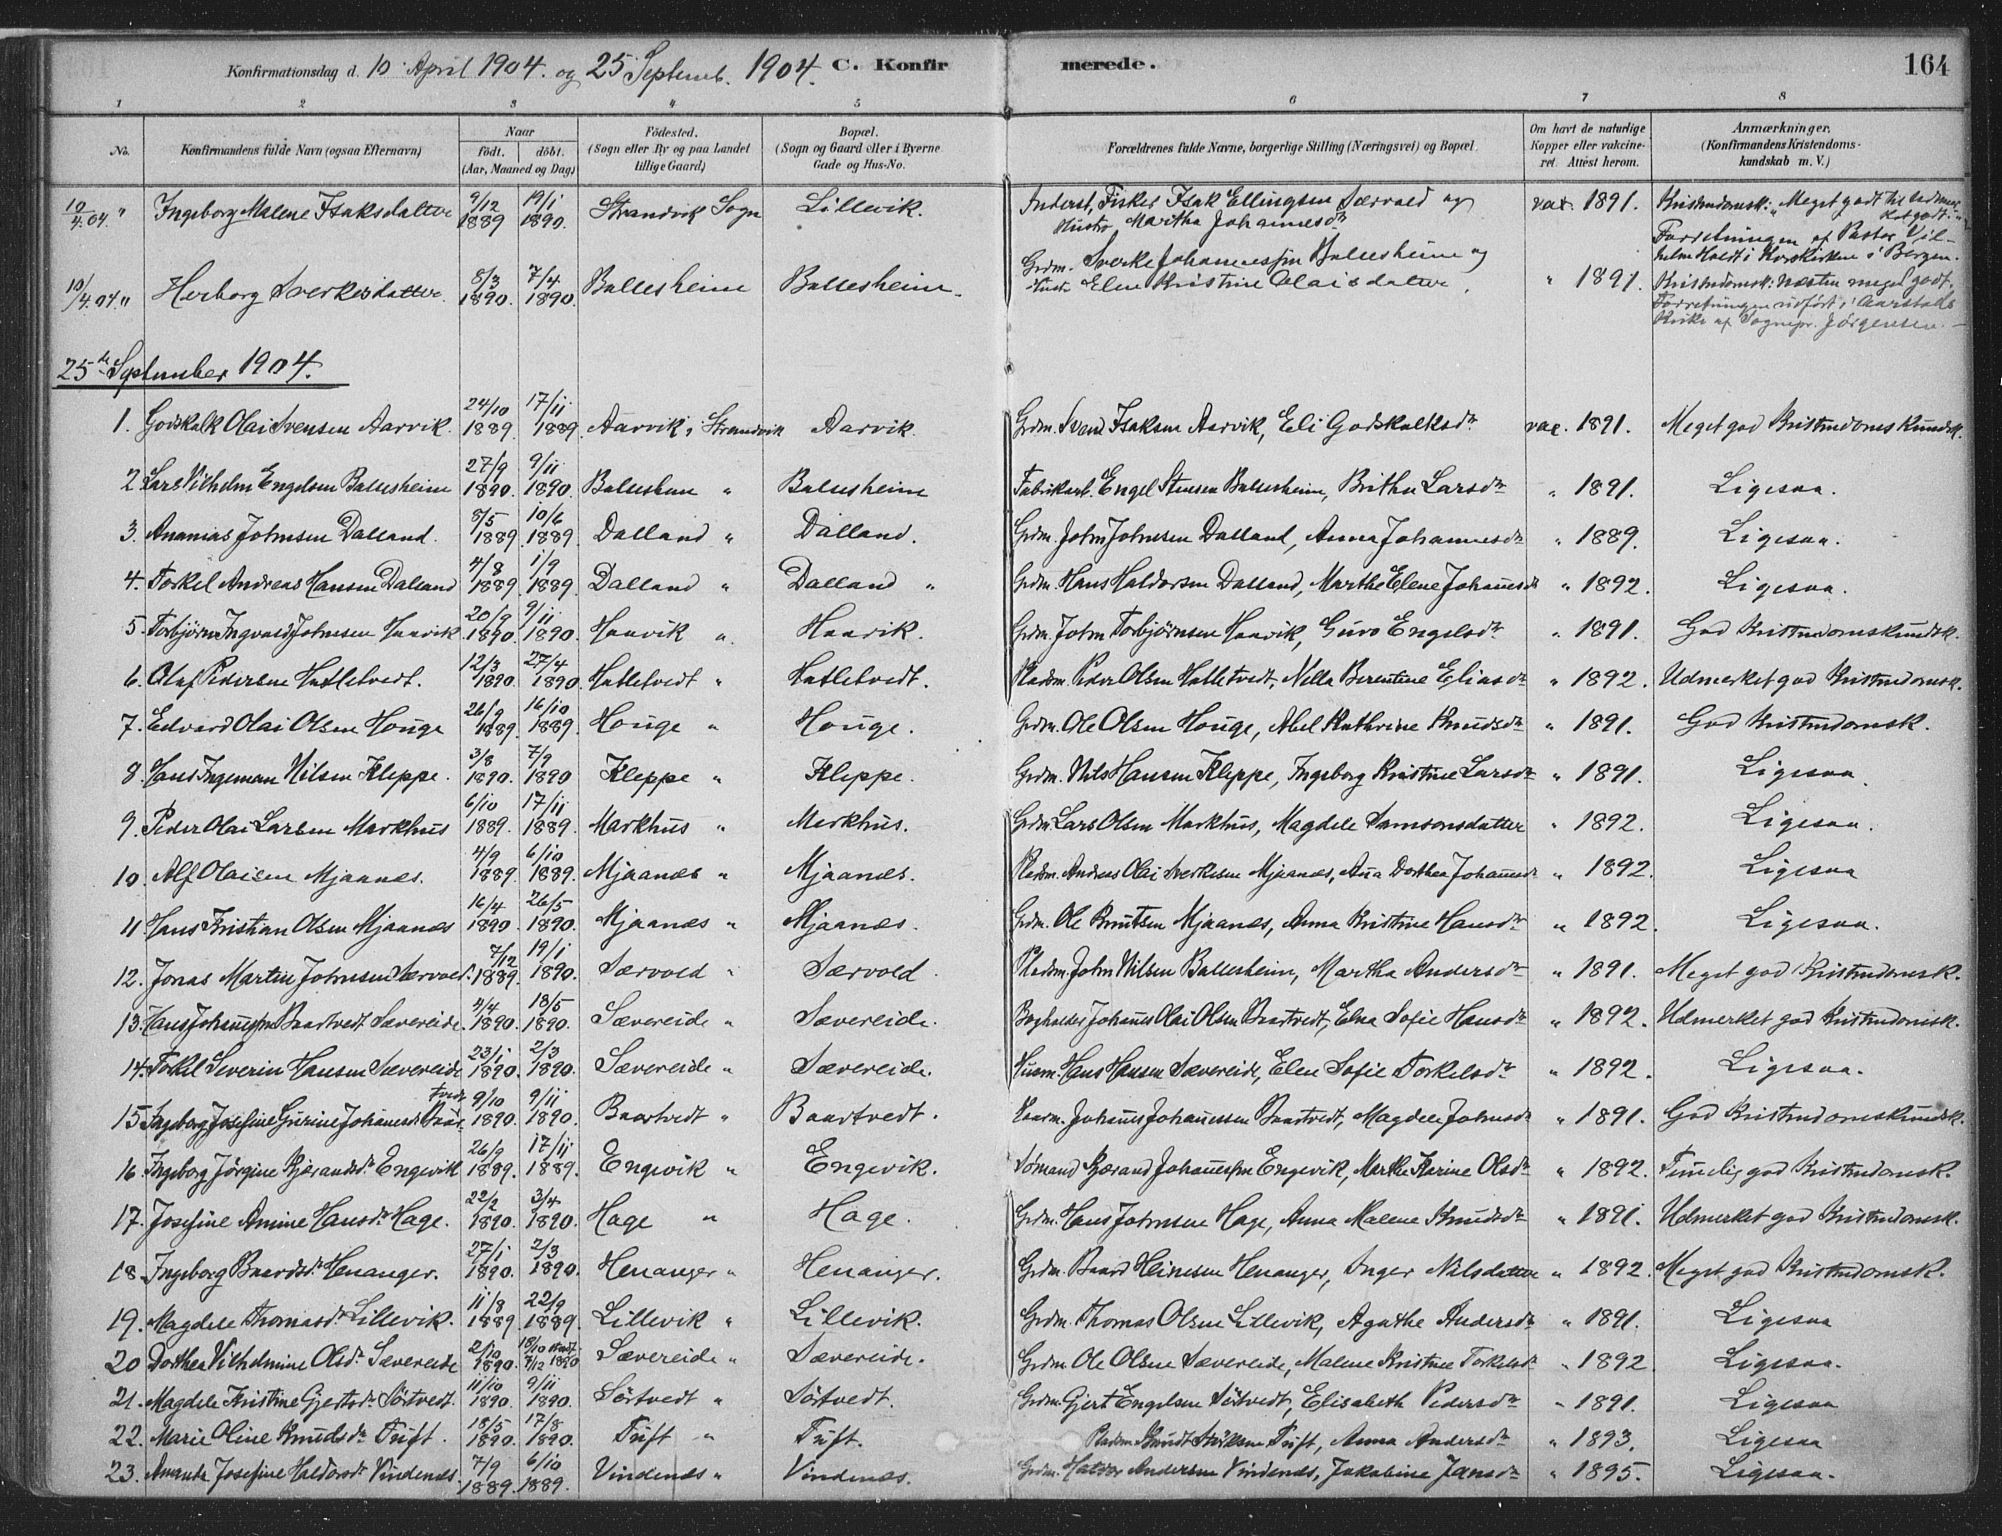 Konfirmationsdag d. 10 April 1904. og 25 Septemb. 1904. C. Konfirmerede. 164
1 2 3 4 5 6 7 8
No. Konfirmandens fulde Navn (ogsaa Efternavn) Naar födt. döbt. (Aar, Maaned og Dag) Födested. (Sogn eller By og paa Landet tillige Gaard) Bopæl. (Sogn og Gaard eller i Byerne Gade og Hus-No. Forældrenes fulde Navne, borgerlige Stilling (Næringsvei) og Bopæl. Om havt de naturlige Kopper eller vakcineret. Attest herom. Anmærkninger. (Konfirmandens Kristendomskundskab m. V.)
10/4.04. " Ingeborg Malene Isaksdatter 9/12 1889 19/1 1890. Strandvik Sogn Lillevik. Inderst, Fisker Isak Ellingsen Særvold og Hustr. Martha Johannesdtr vax. 1891. Kristendomsk: "Meget godt til udmærket godt." Forretningen af Pastor Vilhelm Holdt i Korskirken i Bergen.
10/4.04 " Herborg Sverkesdatter. 8/3 1890. 7/4 1890. Ballesheim Ballesheim. Grdm. Sverke Johannessen Ballesheim og Hustr. Elen Kristine Olaisdatter. " 1891. Kristendomsk: Næsten meget godt. Forretningen udført i Aarstads Kirke af Sognepr. Jørgensen.
25de September 1904.
1. Godskalk Olai Svensen Aarvik. 24/10 1889. 17/11 1889. Aarvik i Strandvik Aarvik. Grdm. Svend Isaksen Aarvik, Eli Godskalksdtr vax. 1891. Meget god Kristendomskundsk.
2 Lars Vilhelm Engelsen Ballesheim 27/9 1890. 9/11 1890. Ballesheim " Ballesheim Fabrikarb. Engel Steensen Ballesheim, Britha Larsdtr " 1891. Ligesaa.
3. Ananias Johnsen Dalland. 8/5 1889. 10/6 1889. Dalland " Dalland. Grdm. John Johnsen Dalland, Anna Johannesdtr " 1889. Ligesaa.
4. Torkel Andreas Hansen Dalland 4/8 1889. 1/9 1889. Dalland " Dalland " Grdm. Hans Haldorsen Dalland, Marthe Elene Johannesdtr " 1892. Ligesaa.
5. Torbjørn Ingvald Johnsen Haavik 20/9 1890. 9/11 1890. Haavik " Haavik. Grdm. John Torbjørnsen Haavik, Guro Engelsdtr " 1891. God Kristendomskundsk.
6. Olaf Pedersen Hatletvedt. 12/3 1890. 27/4 1890. Hatletvedt " Hatletvedt. Pladsm. Peder Olsen Hatletvedt, Nella Berentine Eliasdtr " 1892. Udmerket god Kristendomsk.
7. Edvard Olai Olsen Houge 26/9 1889. 16/10 1889. Houge " Houge. Grdm. Ole Olsen Houge, Abel Kathrine Knudsdtr " 1891. God Kristendomsk.
8. Hans Ingeman Nilsen Kleppe. 3/8 1890. 7/9 1890 Kleppe " Kleppe. Grdm. Nils Hansen Kleppe, Ingeborg Kristine Larsdtr " 1891. Ligesaa.
9. Peder Olai Larsen Markhus 6/10 1889. 17/11 1889. Markhus " Markhus. Grdm. Lars Olsen Markhus, Magdele Samsonsdatter " 1892. Ligesaa.
10. Alf Olaisen Mjaanes. 4/9 1889. 6/10 1889. Mjaanes " Mjaanes. Pladsm. Andreas Olai Sverkesen Mjaanes, Ana Dorthea Johannesdtr " 1892. Ligesaa
11. Hans Kristian Olsen Mjaanes 16/4 1890. 26/5 1890. Mjaanes " Mjaanes. Grdm. Ole Knutsen Mjaanes, Anna Kristine Hansdtr " 1892. Ligesaa.
12. Jonas Martin Johnsen Særvold. 7/12 1889. 19/1 1890. Særvold " Særvold. Pladsm. John Nilsen Ballesheim, Martha Andersdtr " 1891. Meget god Kristendomsk.
13. Hans Johannessen Baartvedt Sævereide. 4/4 1890. 18/5 1890. Sævereide " Sævereide. Bogholder Johannes Olai Olsen Baartvedt, Elna Sofie Hansdtr " 1892. Udmerket god Kristendomsk.
14. Torkel Severin Hansen Sævereide 23/1 1890. 2/3 1890. Sævereide " Sævereide. Husm. Hans Hansen Sævereide, Elen Sofie Torkelsdtr " 1892. Ligesaa.
15. Ingeborg Josefine Gurine Johannesdtr Baartvedt 9/10 1890. 9/11 1890. Baartvedt " Baartvedt. Johannes Johannessen Baartvedt, Magdele Johnsdtr " 1891. God Kristendomskundsk.
16 Ingeborg Jørgine Bjerandsdtr Engevik 26/9 1889. 17/11 1889. Engevik " Engevik. Sømand Bjerand Johannessen Engevik, Merthe Karine Olsdtr " 1892. Timelig god Kristendomsk.
17. Josefine Amine Hansdtr Hage. 22/2 1890. 3/4 1890. Hage " Hage. Grdm. Hans Johnsen Hage, Anna Malene Knudsdtr " 1891. Udmerket god Kristendomsk.
18. Ingeborg Baardsdtr Henanger. 27/1 1890. 2/3 1890. Henanger " Henanger. Grdm. Baard Heinesen Henanger, Inger Nilsdatter " 1892. Meget god Kristendomsk.
19. Magdele Thomasdtr Lillevik. 11/8 1889. 22/9 1889. Lillevik " Lillevik. Grdm. Thomas Olsen Lillevik, Agathe Andersdtr " 1891. Ligesaa
20 Dorthea Vilhelmine Olsdtr Sævereide 2/10 1890. 18/10 7/12 1890 Sævereide " Sævereide. Grdm Ole Olsen Sævereide, Malene Kristine Torkelsdtr " 1892. Ligesaa.
21. Magdele Kristine Gjertsdtr Sörtvedt. 11/10 1890. 9/11 1890. Sörtvedt " Sörtvedt. Grdm. Gjert Engelsen Sörtvedt, Elisabeth Pedersdtr " 1891. Ligesaa
22. Marie Oline Knudsdtr Tuft. 18/5 1890. 17/8 1890. Tuft " Tuft. Pladsm Knudt Tuft, Anna Andersdtr " 1893. Ligesaa
23. Amanda Josefine Haldorsdtr Vindenes. 7/9 1889. 6/10 1889. Vindenes " Vindenes. Grdm. Haldor Andersen Vindenes, Jakobine Jansdtr " 1895. Ligesaa.